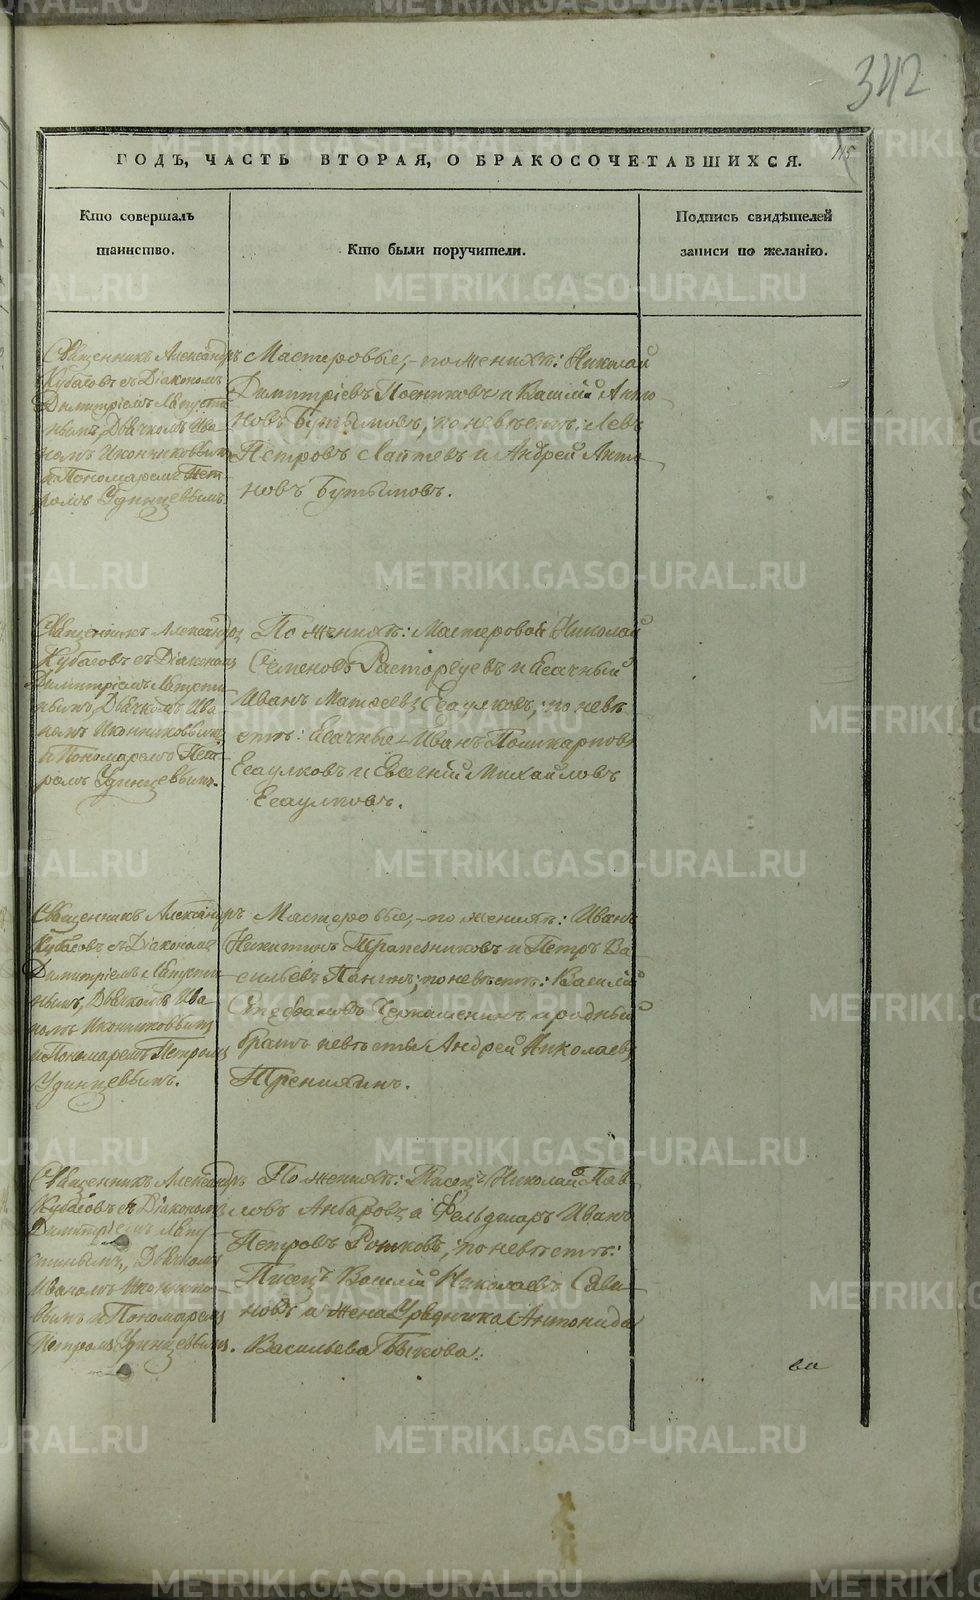 342
115
ГОДЪ, ЧАСТЬ ВТОРАЯ, О БРАКОСОЧЕТАВШИХСЯ.
Кто совершалъ
таинство.
Кто были поручители.
Подпись свидѣтелей
записи по желанію.
Священникъ Александръ
Кубасовъ съ Діакономъ
Димитріемъ
нымъ, Дьячкомъ Ива
номъ Иконниковымъ
и Пономаремъ Пет
ромъ Удинцевымъ.
Мастеровые,- по женихѣ: Николай
Димитріевъ и Василій Анто
новъ Бутымовъ, по невѣстѣ: Левъ
Петровъ Лаптевъ и Андрей Анто
новъ Бутымовъ.
Священникъ Александръ
Кубасовъ съ Діакономъ
Димитріемъ
нымъ, Дьячкомъ Ива
номъ Иконниковымъ
и Пономаремъ Пет
ромъ Удинцевымъ.
По женихѣ: Мастеровой Николай
Семеновъ Расторгуевъ и
Иванъ Матѳеевъ Есаулковъ, по невѣ
стѣ: Иванъ Поликарповъ
Есаулковъ и Евгеній Михайловъ
Есаулковъ.
Священникъ Александръ
Кубасовъ съ Діакономъ
Димитріемъ
нымъ, Дьячкомъ Ива
номъ Иконниковымъ
и Пономаремъ Петромъ
Удинцевымъ.
Мастеровые,- по женихѣ: Иванъ
Никитинъ Трапезниковъ и Петръ Ва-
сильевъ Панинъ; по невѣстѣ: Василій
Стефановъ и родный
братъ невѣсты Андрей Николаевъ
Тренихинъ.
Священникъ Александръ
Кубасовъ съ Діакономъ
Димитріемъ
Дьячкомъ
Иваномъ Иконнико
вымъ и Пономаремъ
Петромъ Удинцевымъ.
По женихѣ: Писецъ Николай Пав
ловъ Анбаровъ и Фельдшаръ Иванъ
Петровъ по невѣстѣ:
Писецъ Василій Николаевъ Сави
новъ и жена Урядника Антонида
Васильева Быкова.